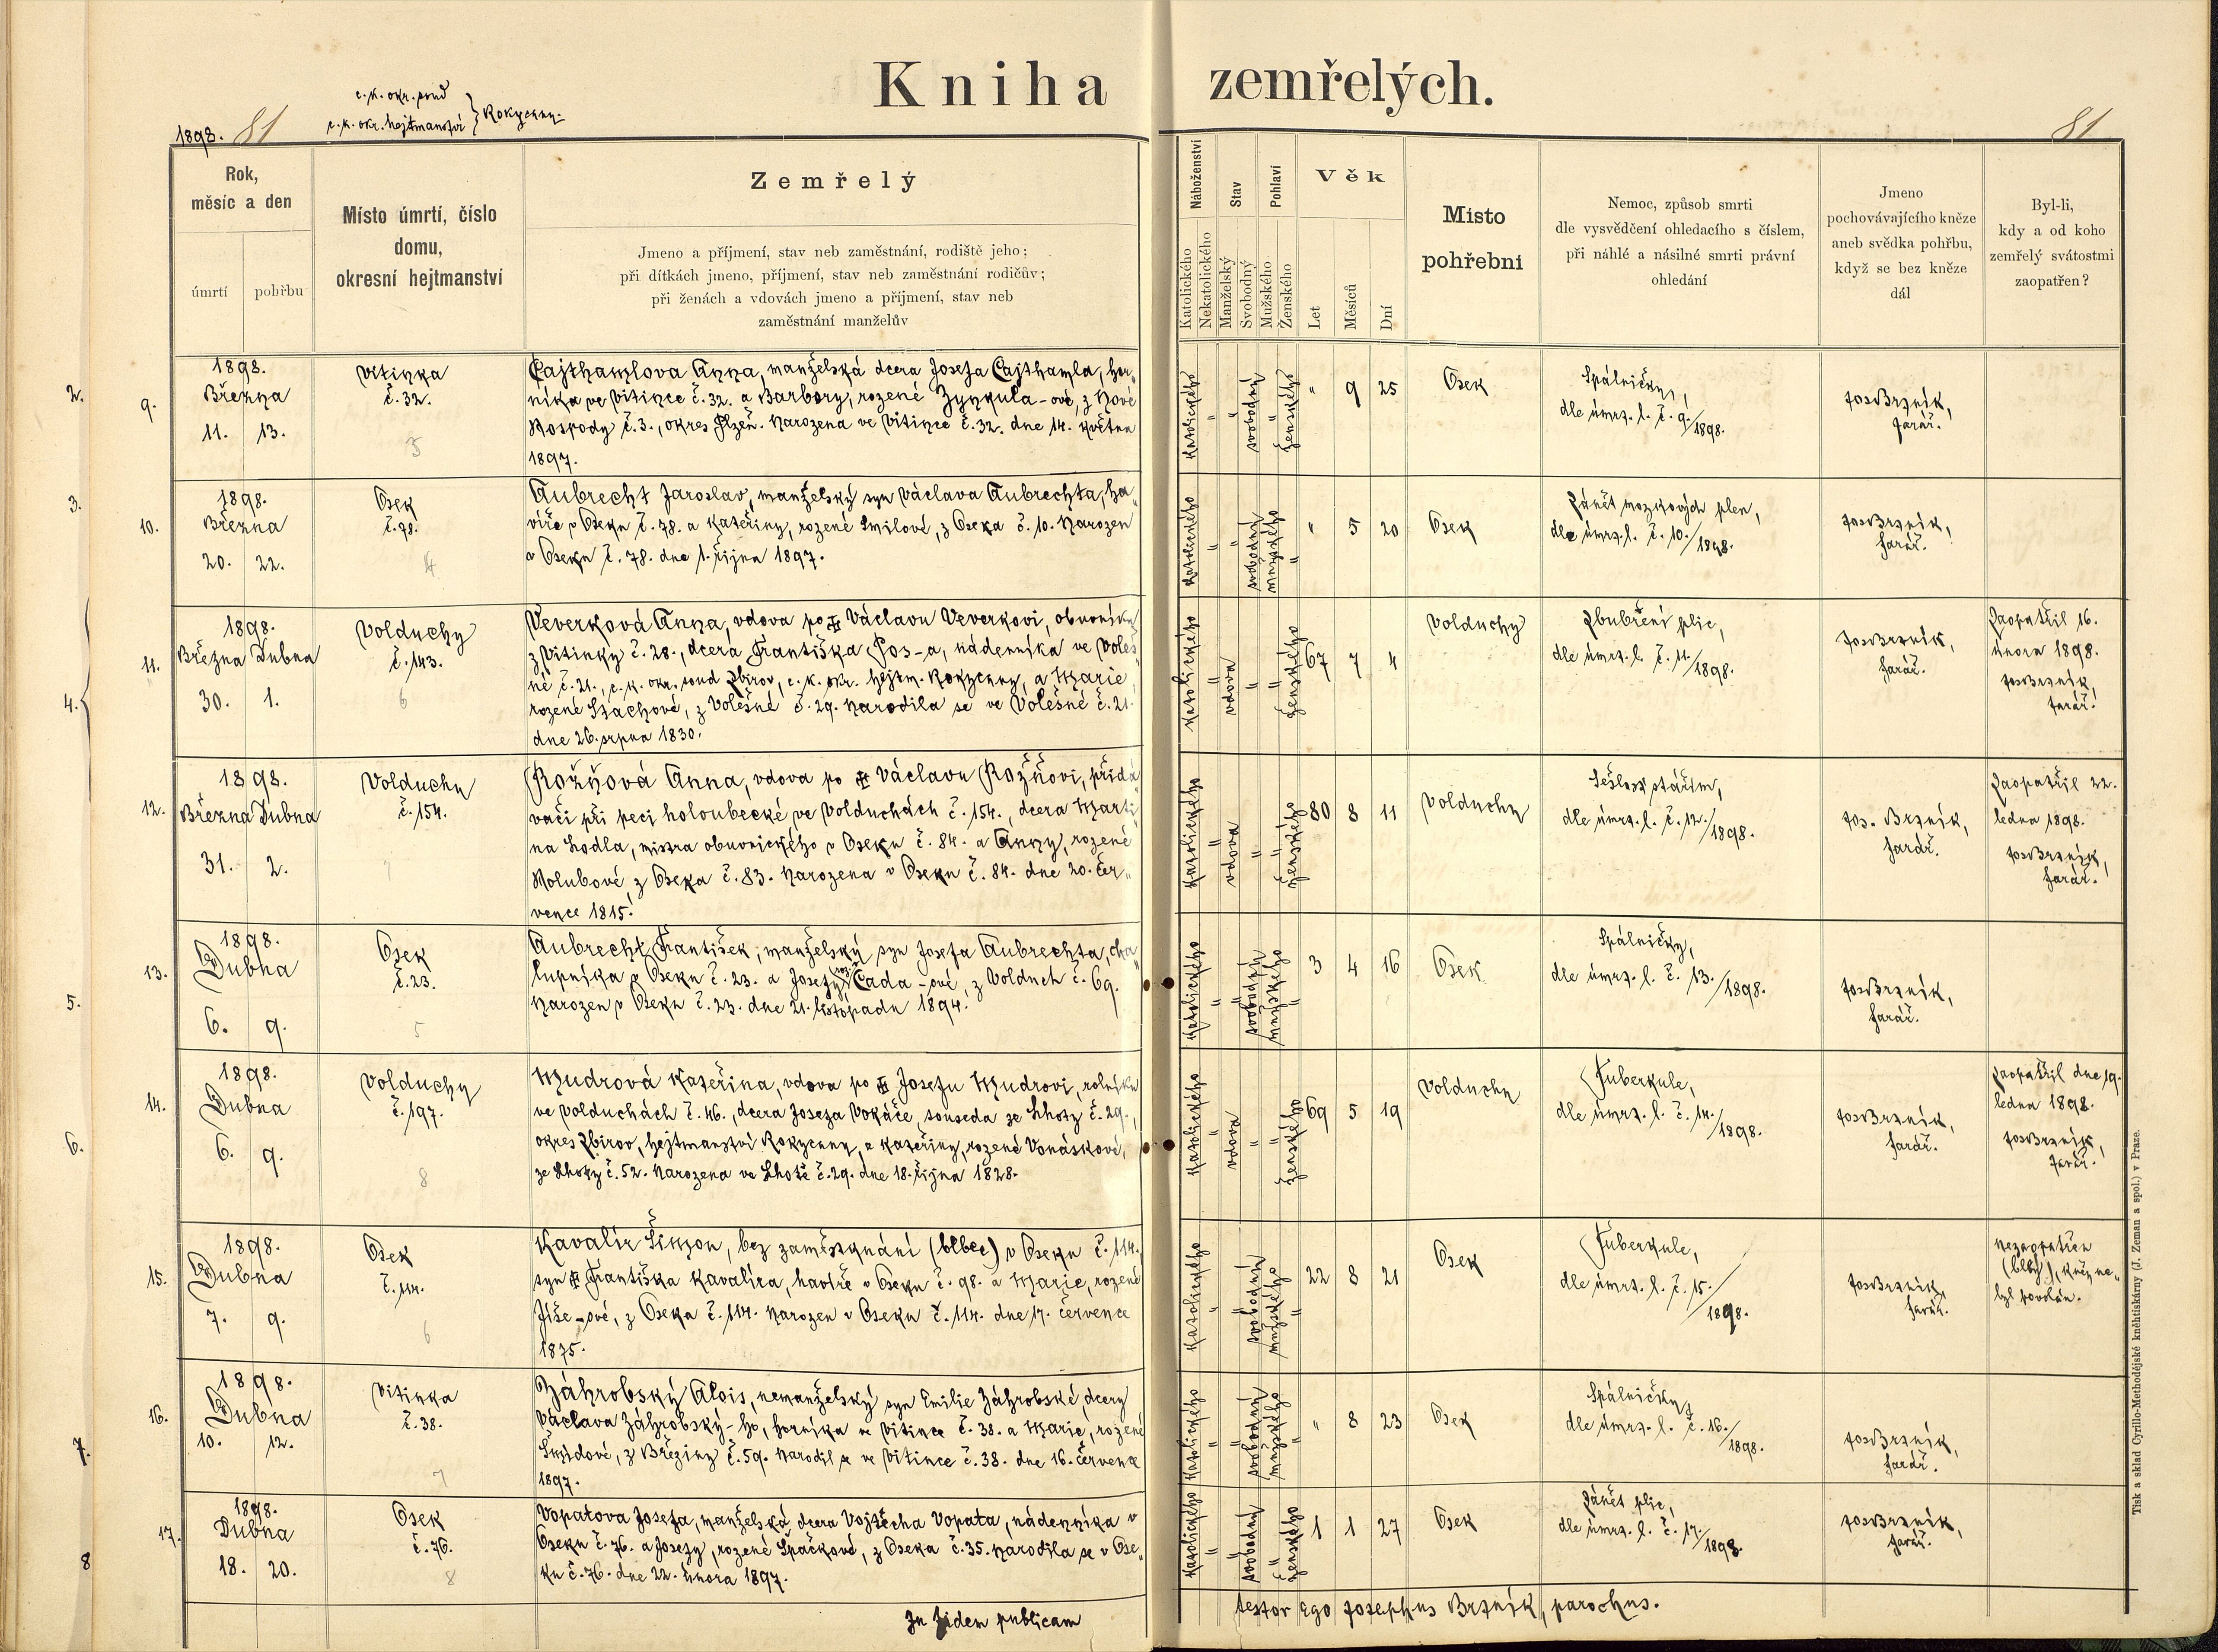 Kniha zemřelých.
c. k. okr. soud
c. k. okr. hejtmanství } Rokycany.
1898. 81
81
Rok,
měsíc a den
úmrtí pohřbu
Místo úmrtí, číslo
domu,
okresní hejtmanství
Zemřelý
Jmeno a příjmení, stav neb zaměstnání, rodiště jeho;
při dítkách jmeno, příjmení, stav neb zaměstnání rodičův;
při ženách a vdovách jmeno a příjmení, stav neb
zaměstnání manželův
Náboženství
Katolického
Nekatolického
Stav
Manželský
Svobodný
Pohlaví
Mužského
Ženského
Věk
Let
Měsíců
Dní
Místo
pohřební
Nemoc, způsob smrti
dle vysvědčení ohledacího s číslem,
při náhlé a násilné smrti právní
ohledání
Jmeno
pochovávajícího kněze
aneb svědka pohřbu,
když se bez kněze
dál
Byl-li,
kdy a od koho
zemřelý svátostmi
zaopatřen?
2.
9.
1898.
Března
11. 13.
Vitinka
č. 32.
3
Cajthamlova Anna, manželská dcera Josefa Cajthamla, hor„
níka ve Vitince č. 32. a Barbory, rozené Zynkula-ové, z Nové
Hospody č. 3., okres Plzeň. Narozena ve Vitince č. 32. dne 14. května
1897.
katolického "
" svobodný
" ženského
" 9 25
Osek
Spálničky,
dle úmrt. l. č. 9./1898.
Jos. Brtník,
farář.
3.
10.
1898.
Března
20. 22.
Osek
č. 78.
4
Aubrecht Jaroslav, manželský syn Václava Aubrechta, ha„
víře v Oseku č. 78. a Kateřiny, rozené Smilové, z Oseka č. 10. Narozen
v Oseku č. 78. dne 1. října 1897.
katolického "
" svobodný
mužského "
" 5 20
Osek
Zánět mozkových plen,
dle úmrt. l. č. 10./1898.
Jos. Brtník,
farář.
4.
11.
1898.
Března Dubna
30. 1.
Volduchy
č. 143.
6
Veverková Anna, vdova po ✠ Václavu Veverkovi, obuvníku
z Vitinky č. 28., dcera Františka Pos-a, nádenníka ve Voleš„
né č. 21., c. k. okr. soud Zbirov, c. k. okr. hejtm. Rokycany, a Marie,
rozené Stachové, z Volešné č. 29. Narodila se ve Volešné č. 21.
dne 26. srpna 1830.
katolického "
vdova
" ženského
67 7 4
Volduchy
Zbubření plic,
dle úmrt. l. č. 11./1898.
Jos. Brtník,
farář.
Zaopatřil 16.
února 1898.
Jos. Brtník,
farář.
12.
1898.
Března Dubna
31. 2.
Volduchy
č. 154.
7
Rožňová Anna, vdova po ✠ Václavu Rožňovi, přidá„
vači při peci holoubecké, ve Volduchách č. 154., dcera Marti„
na Lodla, mistra obuvnického v Oseku č. 84. a Anny, rozené
Holubové, z Oseka č. 83. Narozena v Oseku č. 84. dne 20. čer„
vence 1815.
katolického "
vdova
" ženského
80 8 11
Volduchy
Sešlost stářím,
dle úmrt. l. č. 12./1898.
Jos. Brtník,
farář.
Zaopatřil 22.
ledna 1898.
Jos. Brtník,
farář.
5.
13.
1898.
Dubna
6. 9.
Osek
č. 23.
5
Aubrecht František, manželský syn Josefa Aubrechta, cha„
lupníka v Oseku č. 23. a Josefy, roz. Čada-ové, z Volduch č. 69.
Narozen v Oseku č. 23. dne 21. listopadu 1894.
katolického "
" svobodný
mužského "
3 4 16
Osek
Spálničky,
dle úmrt. l. č. 13./1898.
Jos. Brtník,
farář.
6.
14.
1898.
Dubna
6. 9.
Volduchy
č. 197.
8
Mudrová Kateřina, vdova po ✠ Josefu Mudrovi, rolníku
ve Volduchách č. 46., dcera Josefa Vokáče, souseda ze Lhoty č. 29.,
okres Zbirov, hejtmanství Rokycany, a Kateřiny, rozené Vonáskové,
ze Lhoty č. 52. Narozena ve Lhotě č. 29. dne 18. října 1828.
katolického "
vdova
" ženského
69 5 19
Volduchy
Tuberkule,
dle úmrt. l. č. 14./1898.
Jos. Brtník,
farář.
Zaopatřil dne 19.
ledna 1898.
Jos. Brtník,
farář.
15.
1898.
Dubna
7. 9.
Osek
č. 114.
6
Kavalír Šimon, bez zaměstnání (blbec) v Oseku č. 114.
syn ✠ Františka Kavalíra, havíře v Oseku č. 98. a Marie, rozené
Jíše-ové, z Oseka č. 114. Narozen v Oseku č. 114. dne 17. července
1875.
katolického "
svobodný
mužského "
22 8 21
Osek
Tuberkule,
dle úmrt. l. č. 15./1898.
Jos. Brtník,
farář.
Nezaopatřen
(blbý), kněz ne„
byl povolán.
7.
16.
1898.
Dubna
10. 12.
Vitinka
č. 38.
7
Záhrobský Alois, nemanželský syn Emilie Záhrobské, dcery
Václava Záhrobský-ho, horníka ve Vitince č. 38. a Marie, rozené
Šmídové, z Březiny č. 59. Narodil se ve Vitince č. 38. dne 16. července
1897.
katolického "
" svobodný
mužského "
" 8 23
Osek
Spálničky,
dle úmrt. l. č. 16./1898.
Jos. Brtník,
farář.
8
17.
1898.
Dubna
18. 20.
Osek
č. 76.
8
Vopatova Josefa, manželská dcera Vojtěcha Vopata, nádenníka v
Oseku č. 76. a Josefy, rozené Špačkové, z Oseka č. 35. Narodila se v Ose„
ku č. 76. dne 22. února 1897.
katolického "
" svobodný
" ženského
1 1 27
Osek
Zánět plic,
dle úmrt. l. č. 17./1898.
Jos. Brtník,
farář.
In fidem publicam testor Ego Josephus Brtník, parochus.
Tisk a sklad Cyrillo-Methodějské kněhtiskárny (J. Zeman a spol.) v Praze.